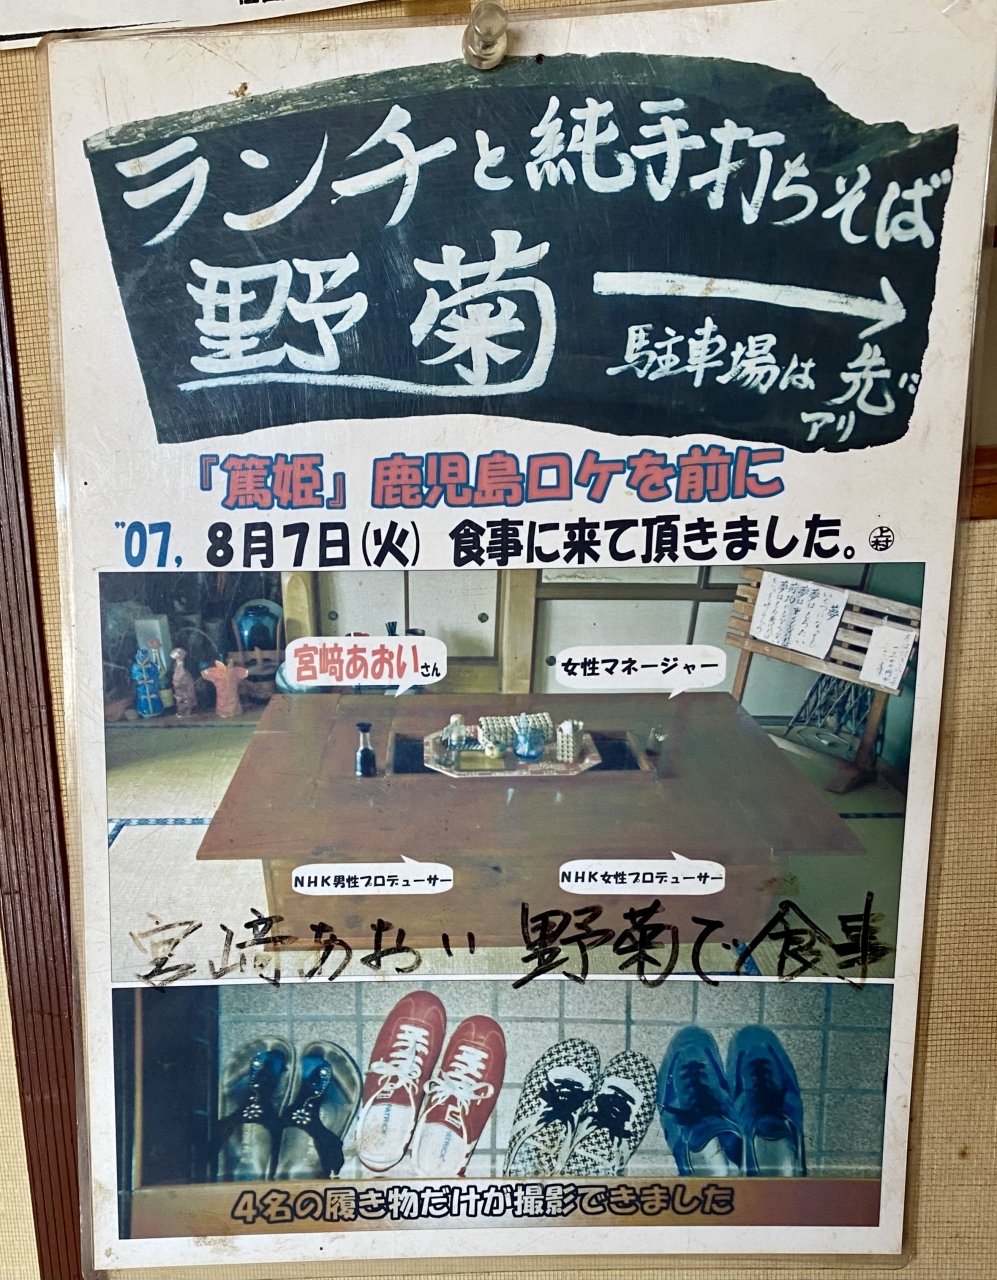 ランチと純手打ちそば
野菊
駐車場は先に
アリ
『篤姫』鹿児島ロケを前に
"07, 8月7日(火) 食事に来て頂きました。
上村
宮﨑あおいさん
女性マネージャー
夢
NHK男性プロデューサー
NHK女性プロデューサー
宮﨑あおい 野菊で食事
PATRICK
4名の履き物だけが撮影できました